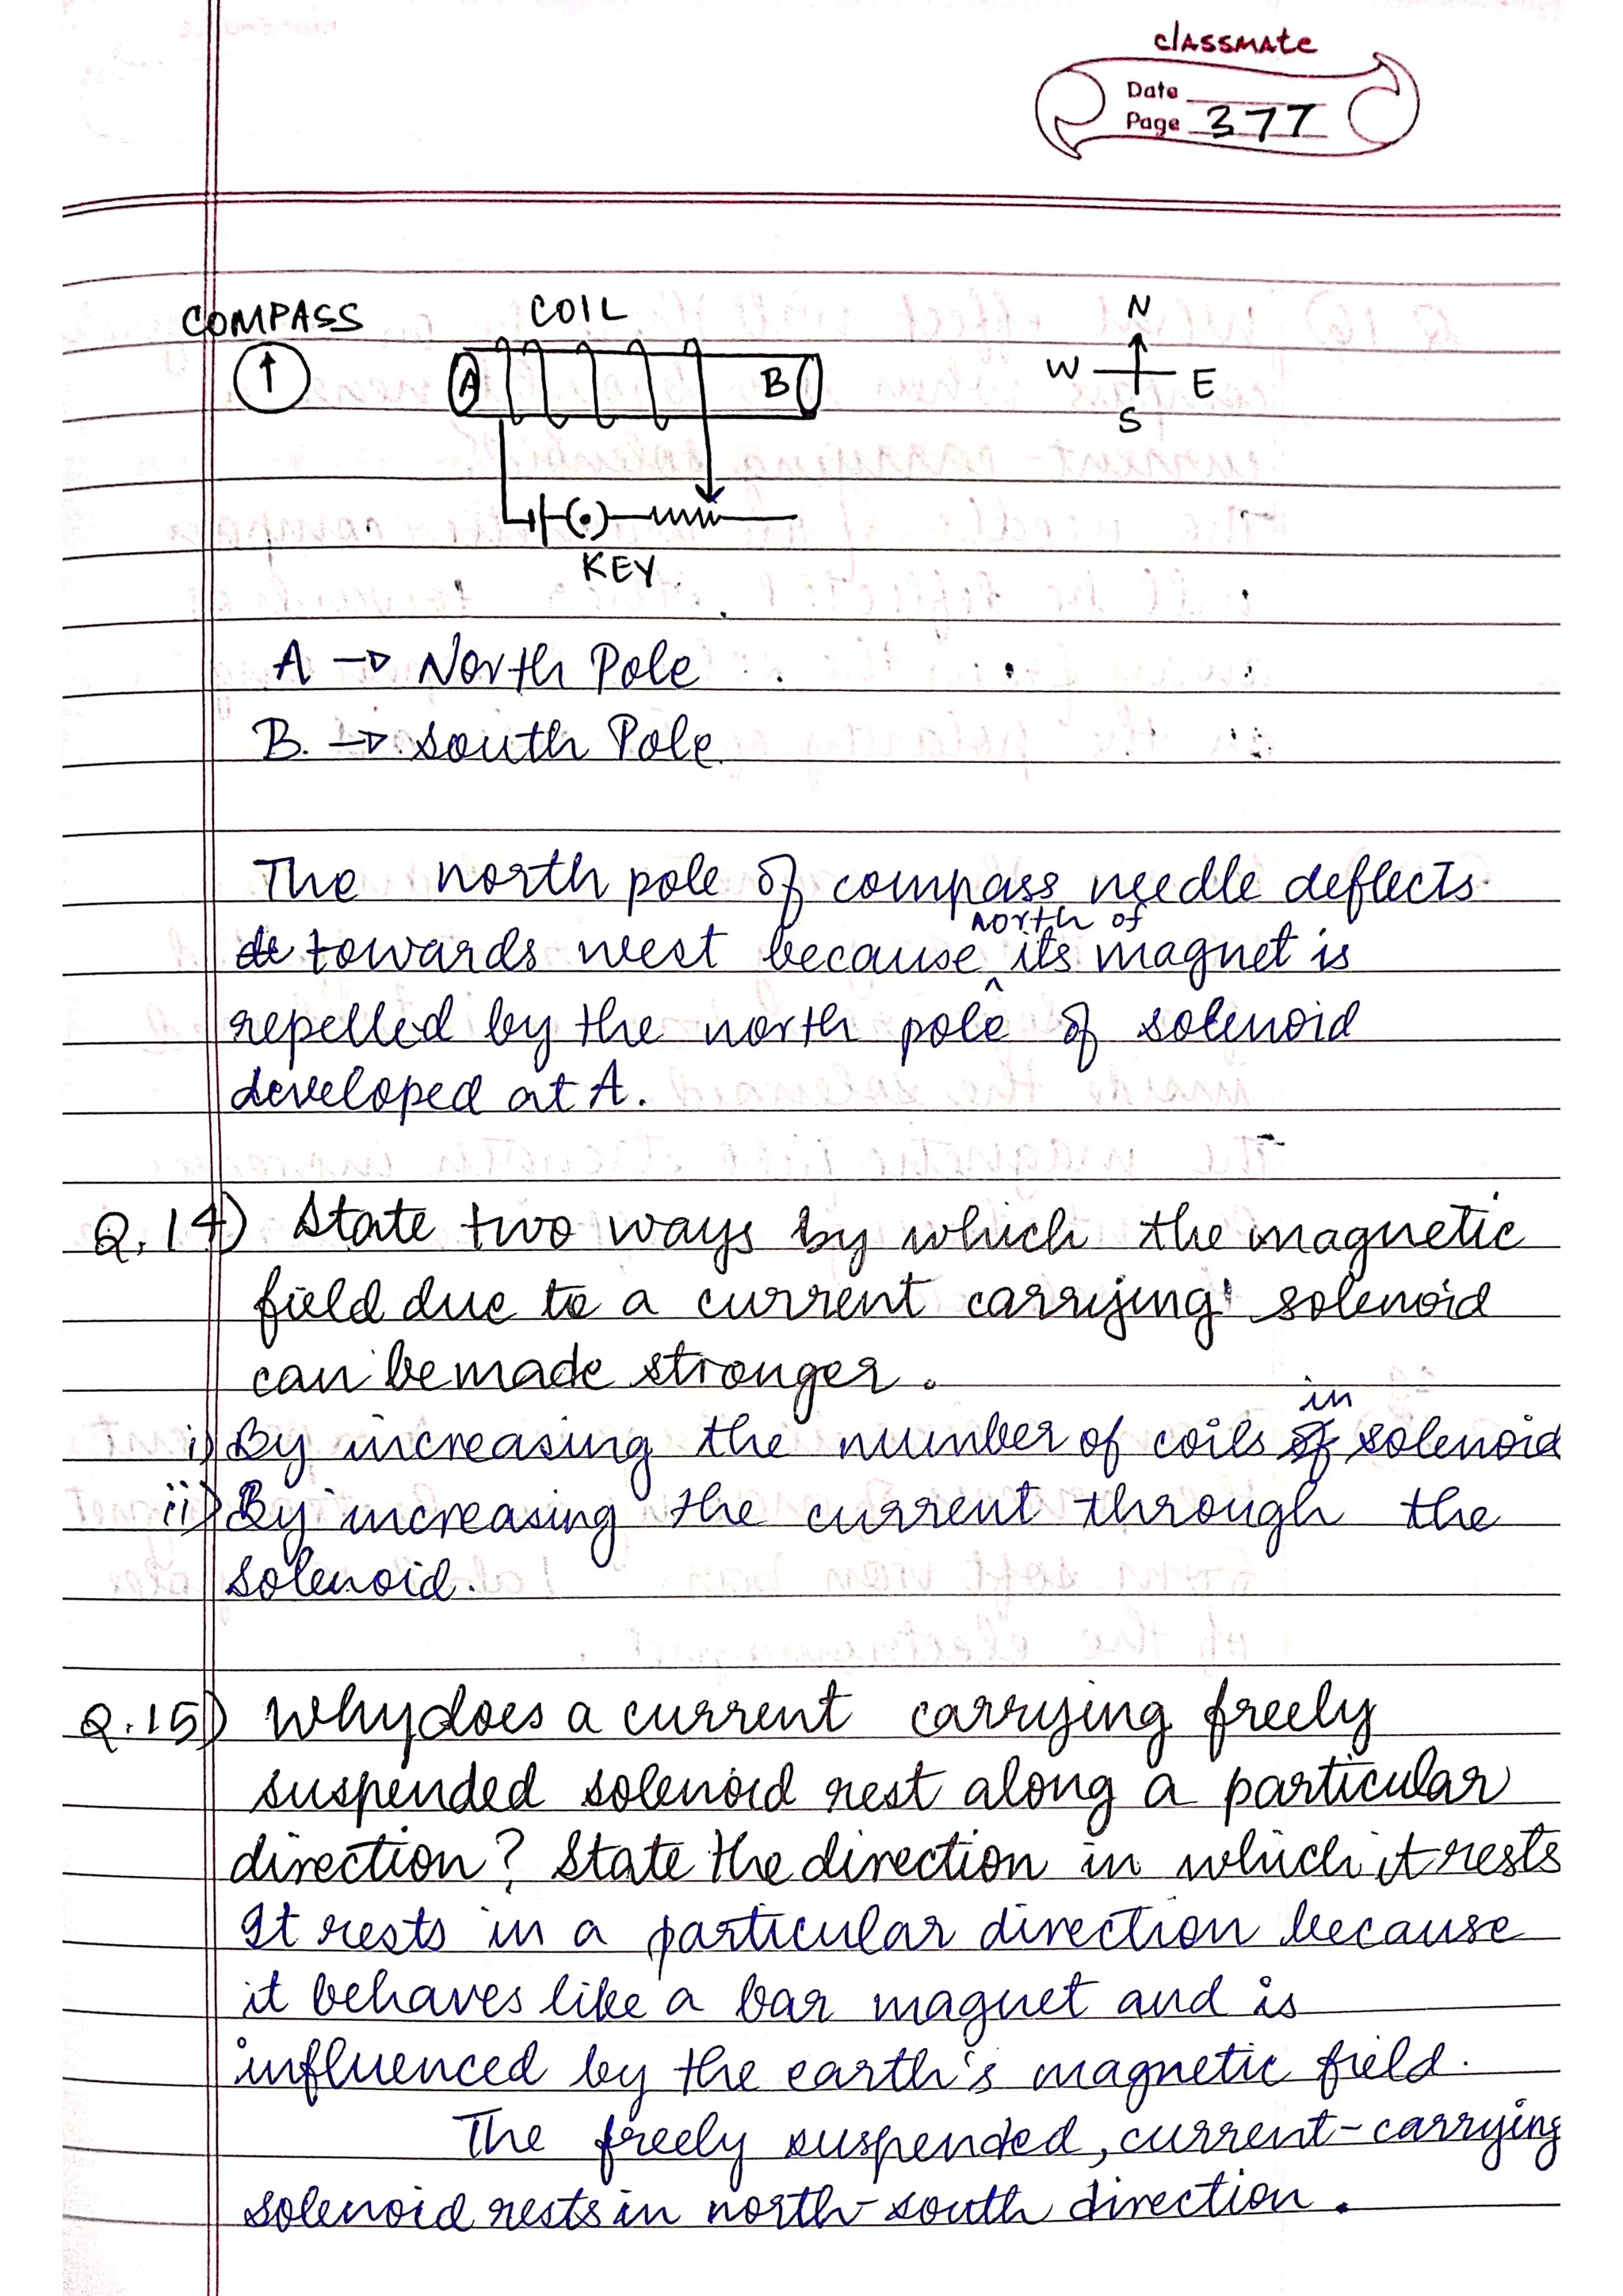 classmate
Date
Page 377
COMPASS COIL N
A B W E
S
KEY
A → North Pole
B. → South Pole
The north pole of compass needle deflects
de towards west because north of its magnet is
repelled by the north pole of solenoid
developed at A.
Q.14) State two ways by which the magnetic
field due to a current carrying solenoid
can be made stronger.
i) By increasing the number of coils of in solenoid
ii) By increasing the current through the
solenoid.
Q.15) Why does a current carrying freely
suspended solenoid rest along a particular
direction? State the direction in which it rests
It rests in a particular direction because
it behaves like a bar magnet and is
influenced by the earth's magnetic field.
The freely suspended, current-carrying
solenoid rests in north-south direction.